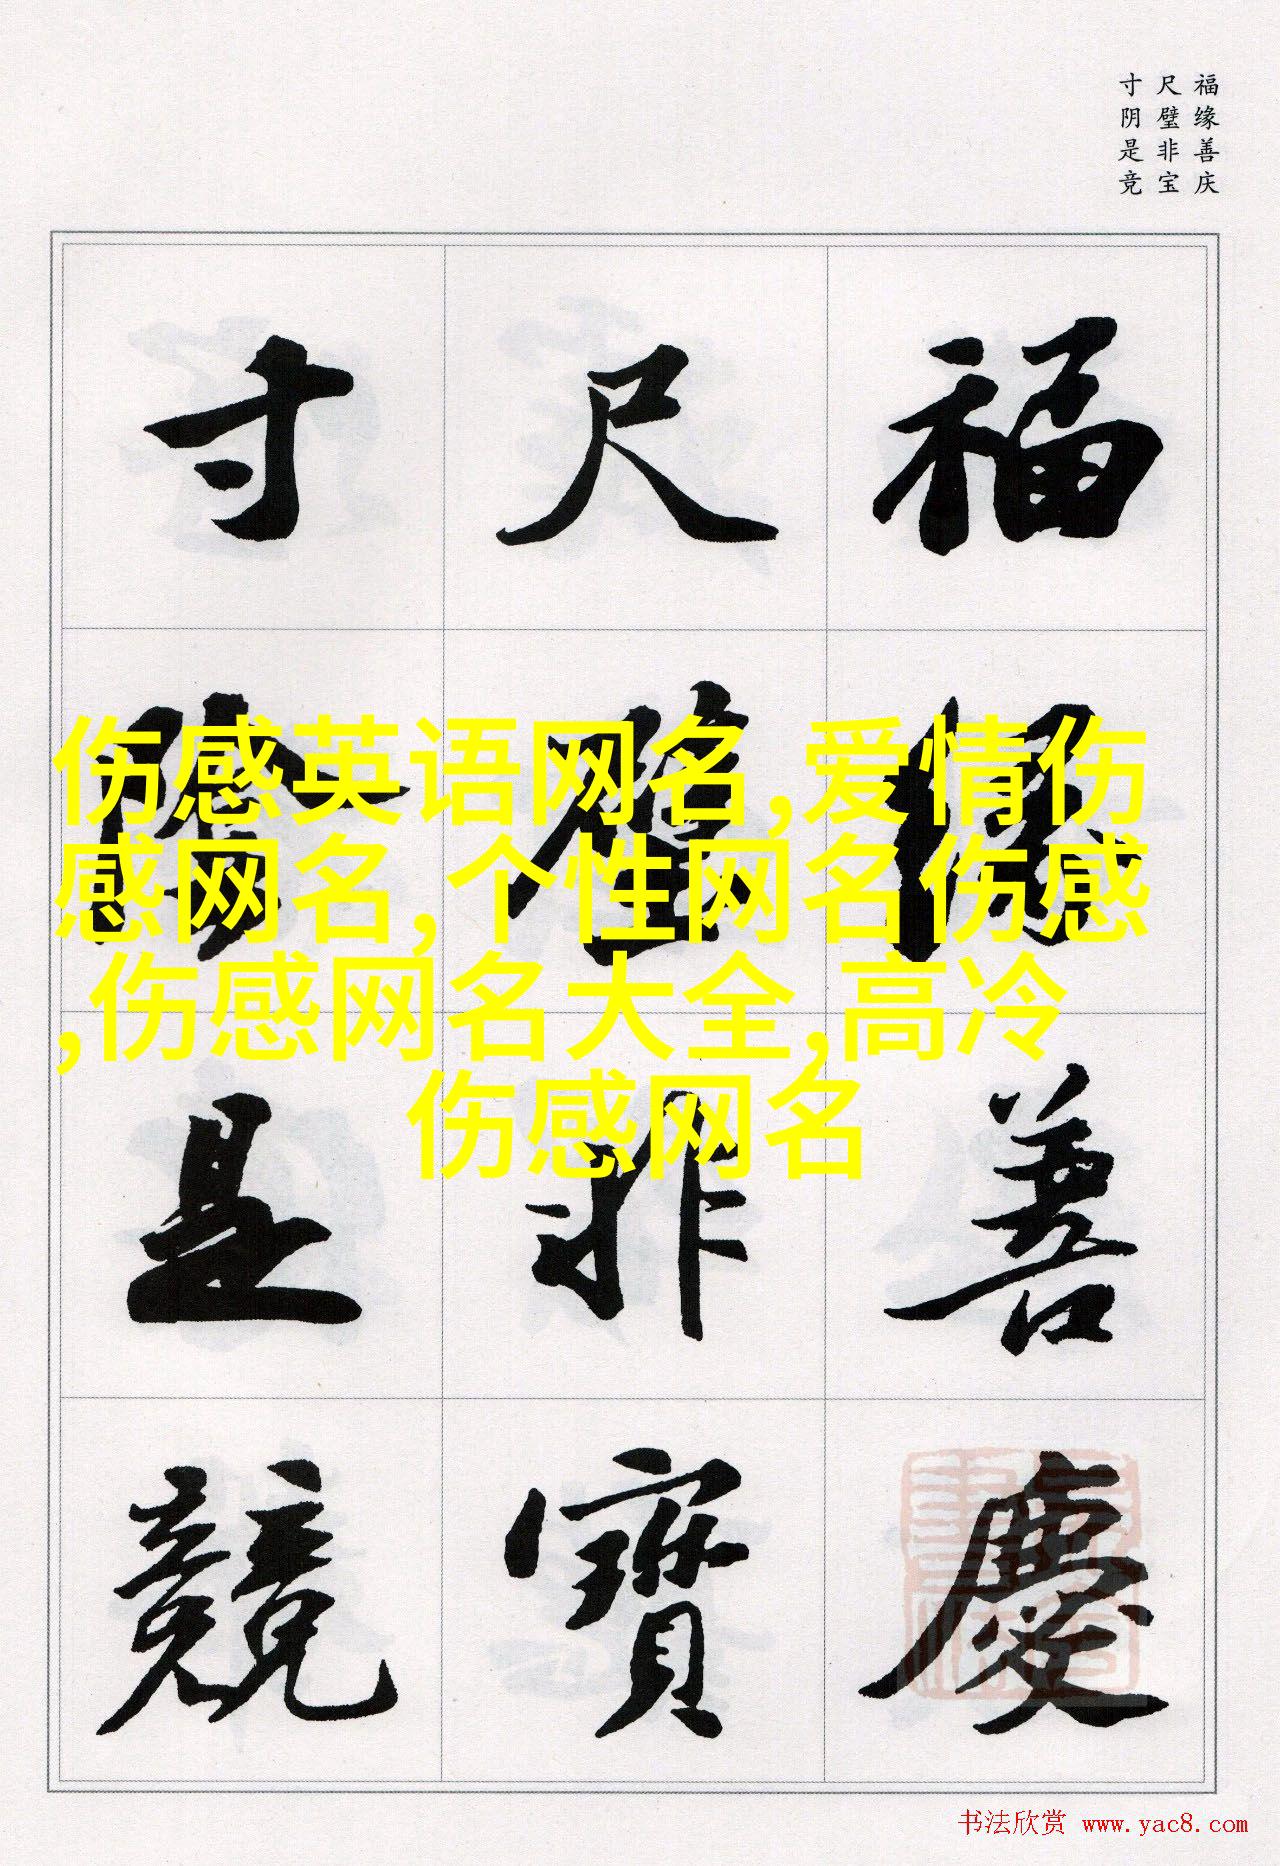 福缘善庆
尺璧非宝
寸阴是竞
福緣善慶
尺璧非寶
寸陰是競
伤感英语网名,爱情伤
感网名,个性网名伤感
,伤感网名大全,高冷
伤感网名
书法欣赏 www.yac8.com